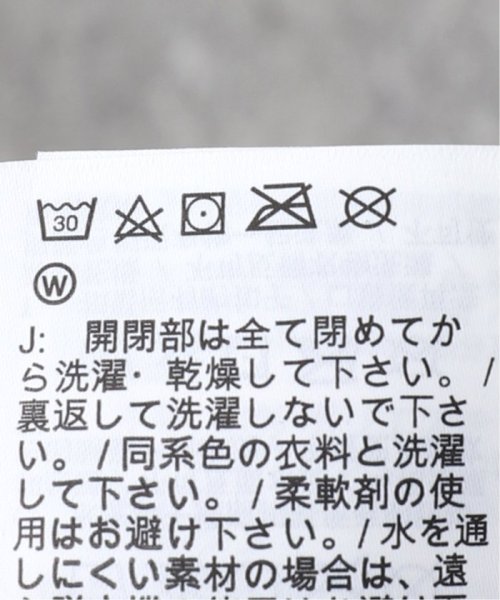 30
W
J: 開閉部は全て閉めてか
ら洗濯・乾燥して下さい。/
裏返して洗濯しないで下さ
い。/同系色の衣料と洗濯
して下さい。/柔軟剤の使
用はお避け下さい。/水を通
しにくい素材の場合は、遠